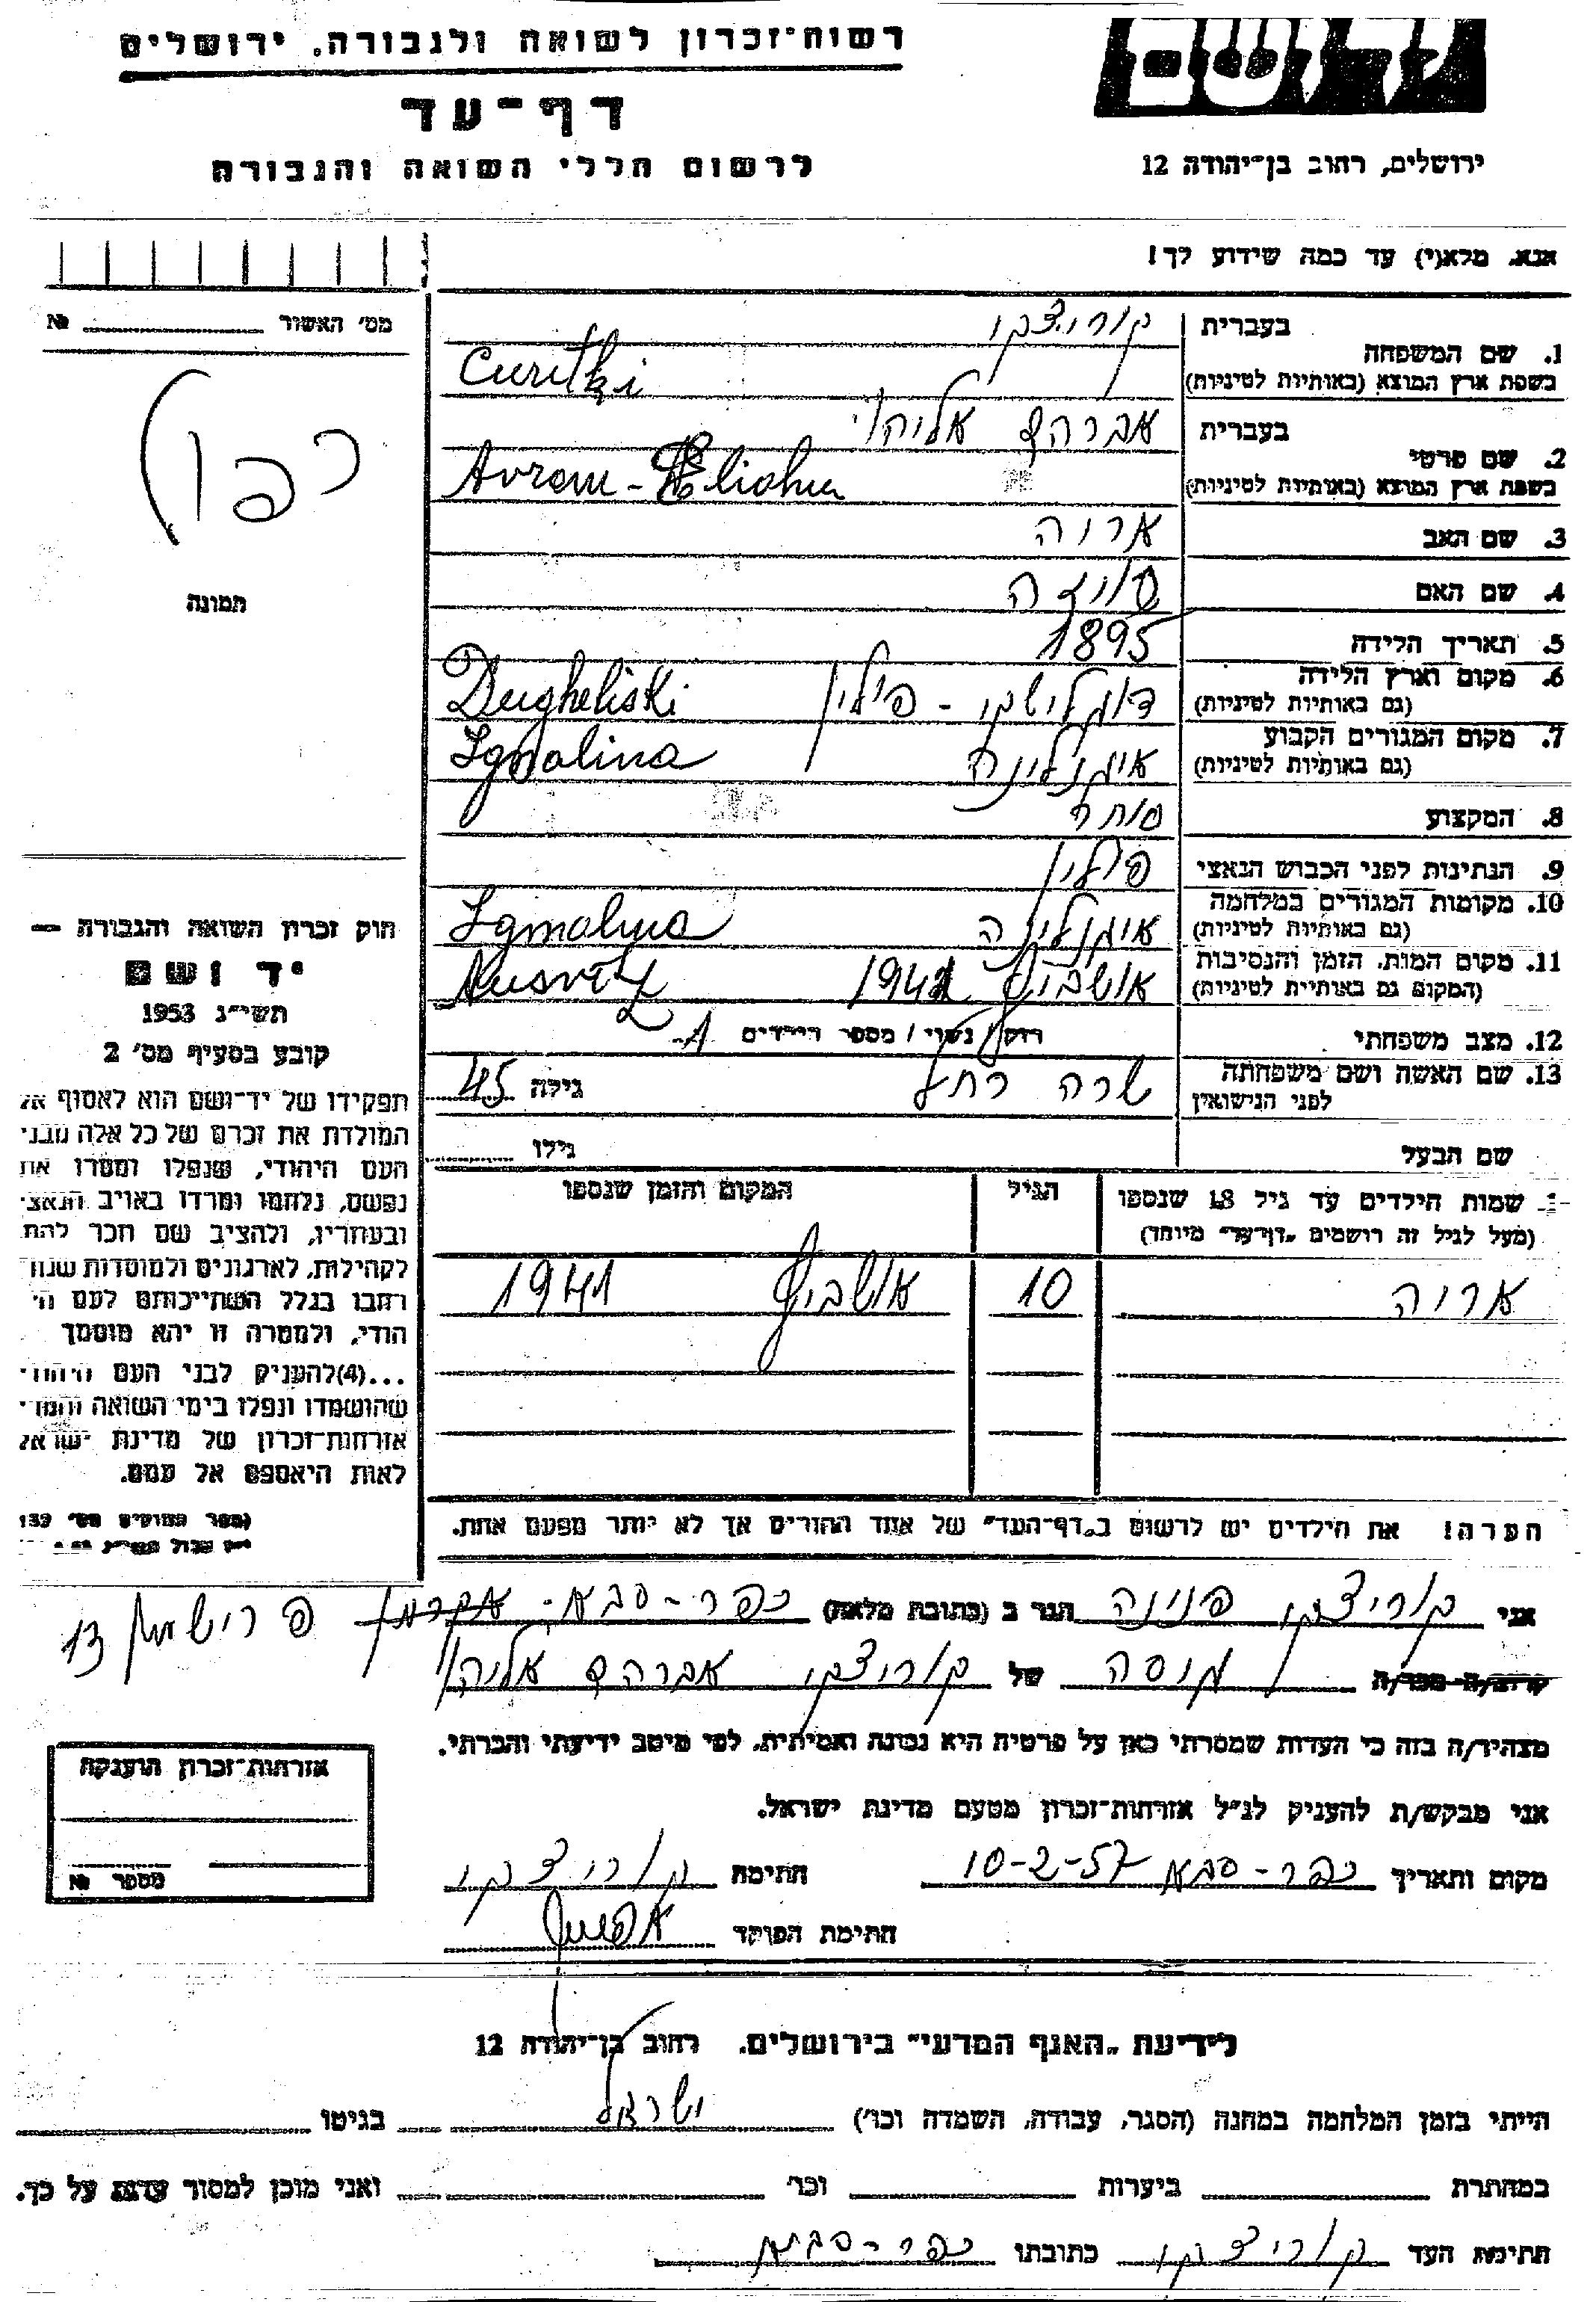 רשות-זכרון לשואה ולגבורה, ירושלים
דף-עד
לרשום חללי השואה והגבורה
ירושלים, רחוב בן-יהודה 12
אנא, מלא(י) עד כמה שידוע לך!
מס' האשור №
תמונה
1. שם המשפחה בעברית קוריצקי
בשפת ארץ המוצא (באותיות לטיניות) Curitki
2. שם פרטי בעברית אברהם אליהו
בשפת ארץ המוצא (באותיות לטיניות) Avram - Eliahu
3. שם האב אריה
4. שם האם
5. תאריך הלידה 1895
6. מקום וארץ הלידה דוגלישקי - פולין Dugheliski
(גם באותיות לטיניות)
7. מקום המגורים הקבוע איגנלינה Ignalina
(גם באותיות לטיניות)
8. המקצוע סוחר
9. הנתינות לפני הכבוש הנאצי פולין
10. מקומות המגורים במלחמה איגנלינה Ignalina
(גם באותיות לטיניות)
11. מקום המות, הזמן והנסיבות אושביץ 1941
(המקום גם באותיות לטיניות)
12. מצב משפחתי רווק / נשוי / מספר הילדים 1
13. שם האשה ושם משפחתה שרה רחל גילה 45
לפני הנישואין
שם הבעל גילו
שמות הילדים עד גיל 18 שנספו הגיל המקום והזמן שנספו
(מעל לגיל זה רושמים "דף-עד" מיוחד)
אריה 10 אושביץ 1941
חוק זכרון השואה והגבורה —
יד ושם
תשי"ג 1953
קובע בסעיף מס' 2
תפקידו של יד-ושם הוא לאסוף אל
המולדת את זכרם של כל אלה מבני
העם היהודי, שנפלו ומסרו את
נפשם, נלחמו ומרדו באויב הנאצי
ובעוזריו, ולהציב שם וזכר להם
לקהילות, לארגונים ולמוסדות שנח
רחבו בגלל השתייכותם לעם הי
הודי, ולמטרה זו יהא מוסמך
...(4) להעניק לבני העם היהודי
שהושמדו ונפלו בימי השואה והמרי
אזרחות-זכרון של מדינת ישראל
לאות היאספם אל עמם.
הערה! את הילדים יש לרשום ב"דף-העד" של אחד ההורים אך לא יותר מפעם אחת.
אני קוריצקי פנינה הגר ב (כתובת מלאה) כפר-סבא
קרוב/ה מכר/ה גיסה של קוריצקי אברהם אליהו
מצהיר/ה בזה כי העדות שמסרתי כאן על פרטיה היא נכונה ואמיתית, לפי מיטב ידיעתי והכרתי.
אני מבקש/ת להעניק לנ"ל אזרחות-זכרון מטעם מדינת ישראל.
מקום ותאריך כפר-סבא 10-2-57 חתימה קוריצקי
חתימת הפוקד
אזרחות-זכרון הוענקה
מספר №
לידיעת "האגף המדעי" בירושלים, רחוב בן-יהודה 12
הייתי בזמן המלחמה במחנה (הסגר, עבודה, השמדה וכו') ישראל בגיטו
במחתרת ביערות וכו' ואני מוכן למסור עדות על כך.
חתימת העד קוריצקי כתובתו כפר-סבא